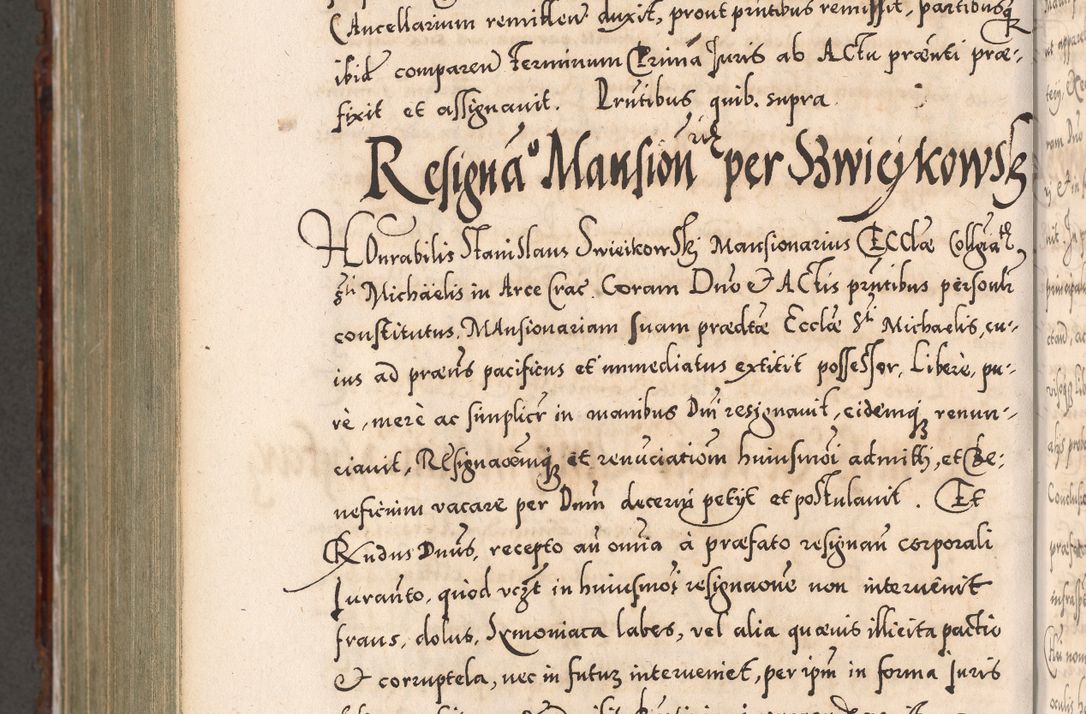 Cancellarium remitten duxit, prout prntibus remissit, partibusq
ibid comparen Terminum Primā Juris ab Actu prænti præ-
fixit et assignavit. Prntibus quib. supra
Resignāo Mansionrie per Szwieykowsky
Honurabilis Stanislaus Swieikowskj Mansionarius Ecclæ Collgiatæ
Sti Michäelis in Arce Crac. Coram Dno & Actis prntibus personlr
constitutus, Mansionariam suam prædtæ Ecclæ Sti Michaelis, cu-
ius ad præns pacificus et immediatus extitit possessor, Liberè, pu-
rè, merè ac simplicr in manibus Dni resignavit, eidemq renun-
ciavit, Resignaoemq et renuciationm huiusmōi admitti, et Be-
neficium vacare per Dnm decerni petÿt et postulavit. Et
Rndus Dnus, recepto an omia à præfato resignan corporali
Juranto, quòd vczt in huiusmoi resignaone non intervēnit
fraus, dolus, Symoniaca labes, vel alia quævis illicita pactio
& corruptela, nec in futur interveniet, per ipm in forma Juris